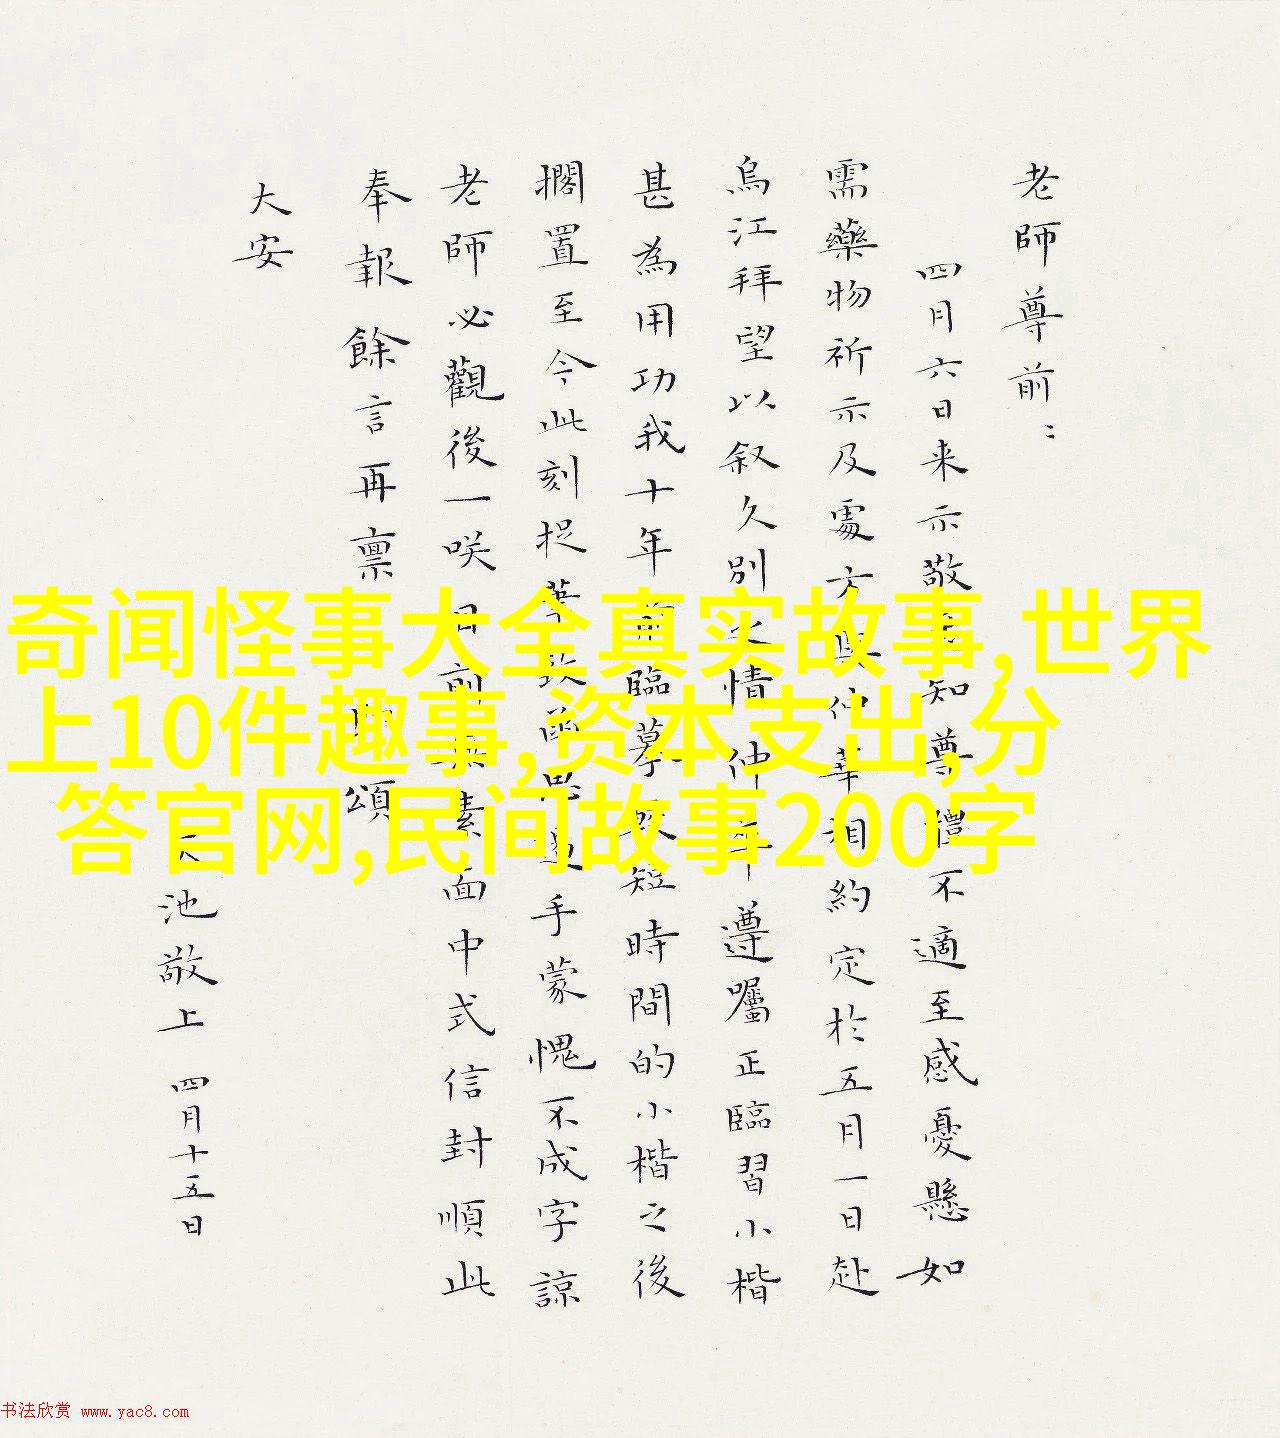 老師尊前：
四月六日来示敬知尊體不適至感憂懸如
需藥物祈示及處方與仲華相約定於五月一日赴
烏江拜望以叙久別之情仲年遵囑正臨習小楷
甚為用功我十年前臨摹短時間的小楷之後
擱置至今此刻捉筆致函思遲手蒙愧不成字諒
老師必觀後一咲日前素面中式信封順此
奉報餘言再禀頌
大安
池敬上 四月十五日
奇闻怪事大全真实故事,世界
上10件趣事,资本支出,分
答官网,民间故事200字
书法欣赏 www.yac8.com